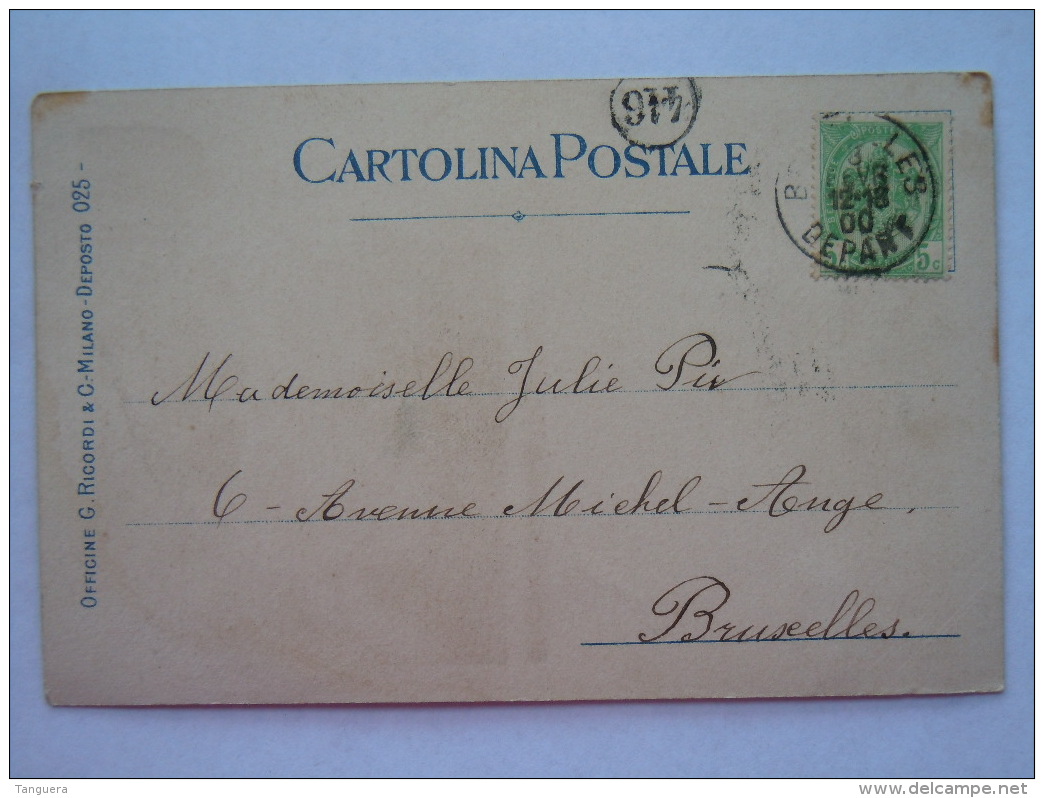 416
CARTOLINA POSTALE
LES
12-18
00
DEPART
POSTE
5c
OFFICINE G. RICORDI & C.-MILANO-DEPOSTO 025-
Mademoiselle Julie
6 - Avenue Michel-Ange,
Bruxelles.
Tanguera
delcampe.net